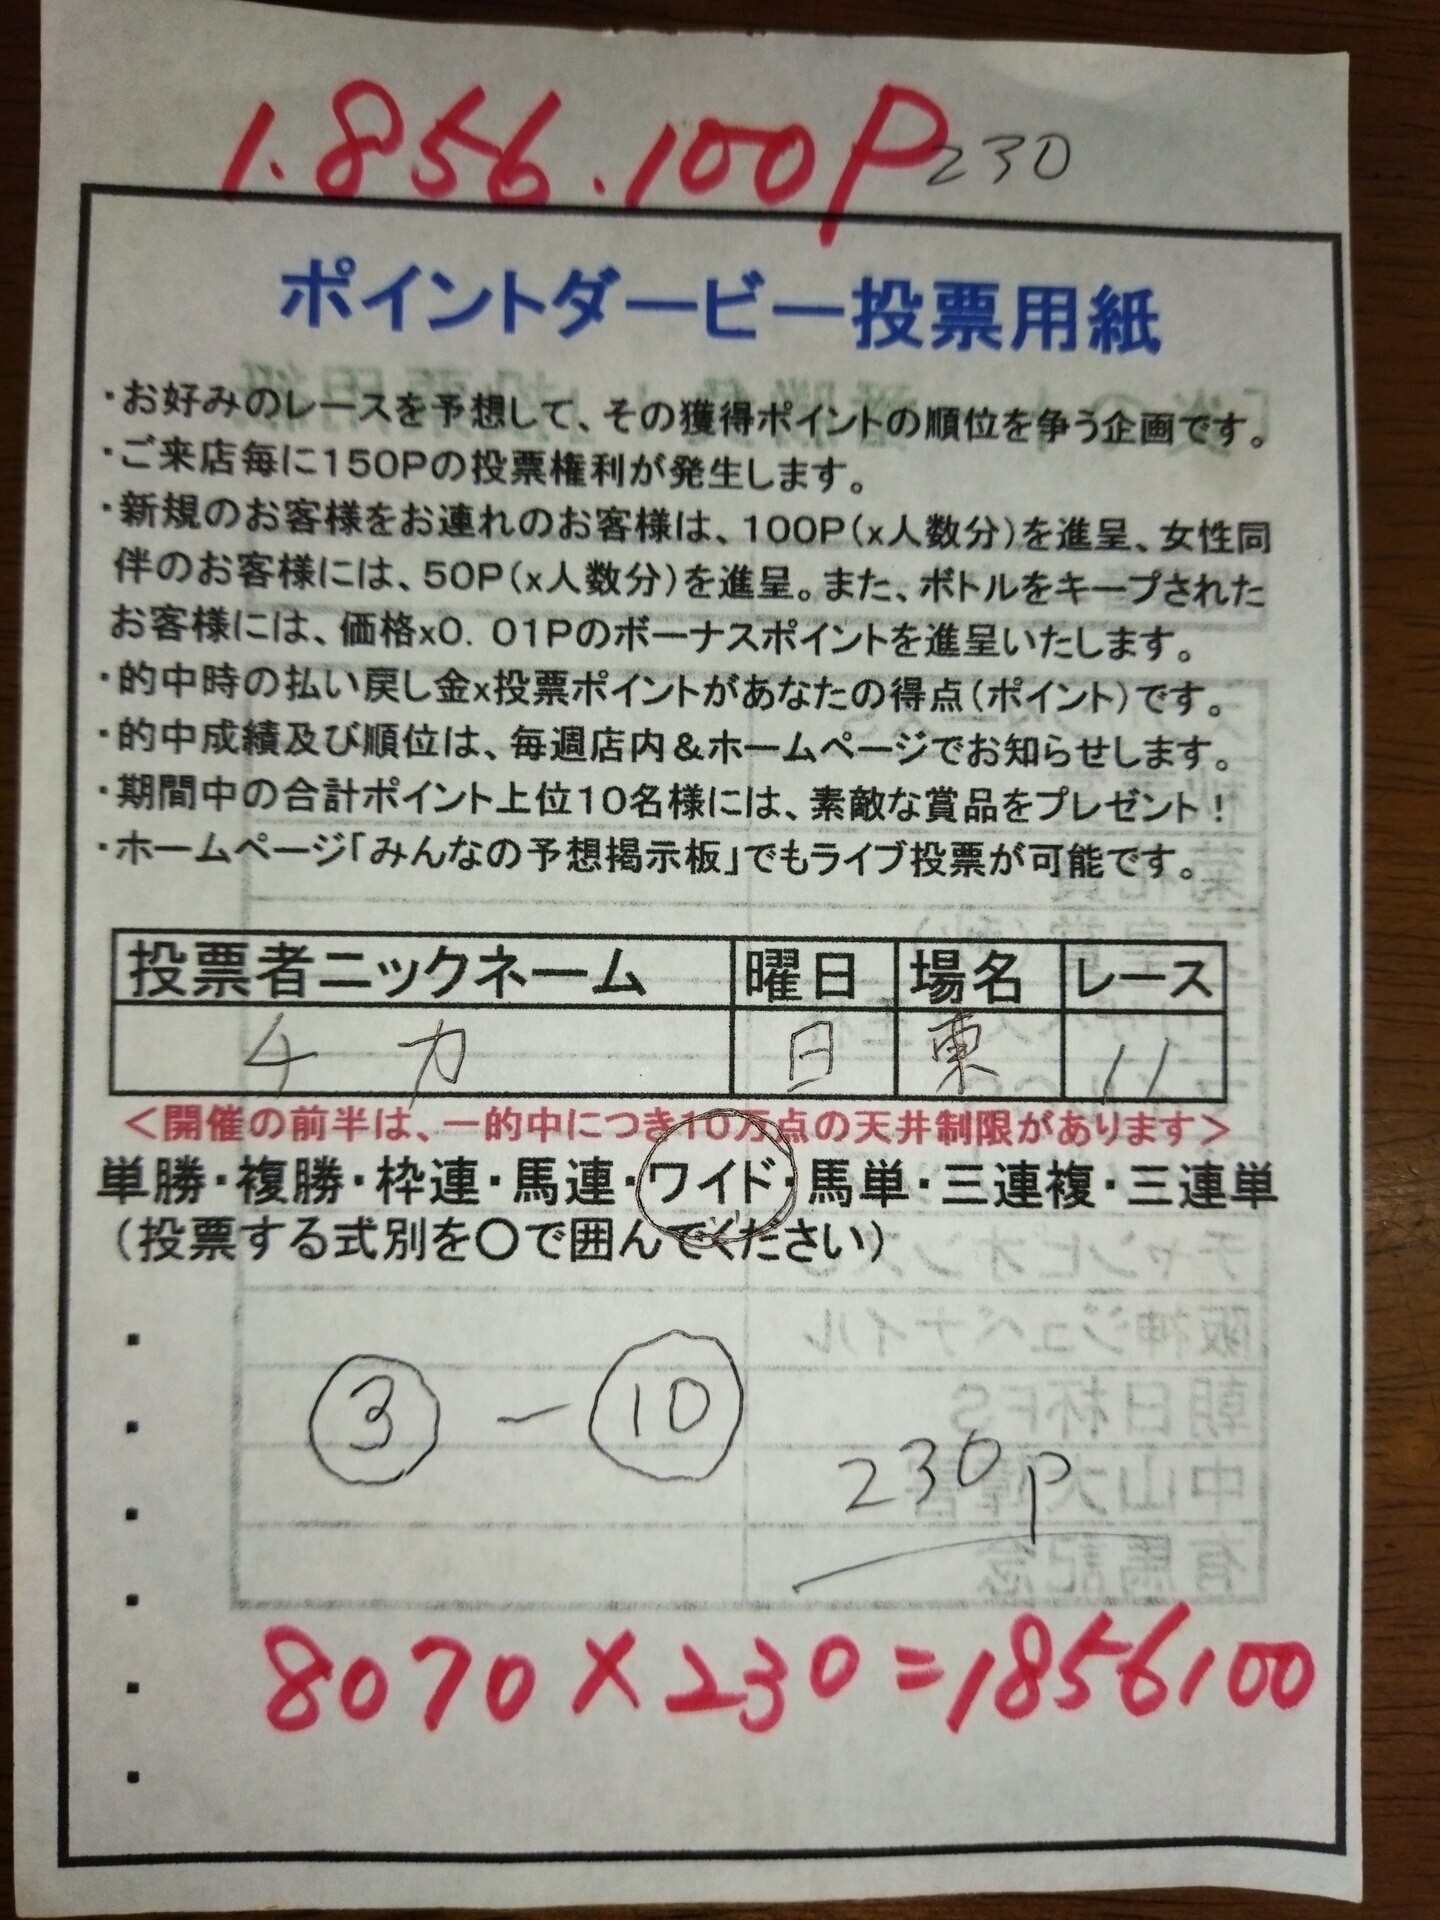 1.856.100P 230
ポイントダービー投票用紙
・お好みのレースを予想して、その獲得ポイントの順位を争う企画です。
・ご来店毎に150Pの投票権利が発生します。
・新規のお客様をお連れのお客様は、100P(x人数分)を進呈、女性同
伴のお客様には、50P(x人数分)を進呈。また、ボトルをキープされた
お客様には、価格x0. 01Pのボーナスポイントを進呈いたします。
・的中時の払い戻し金x投票ポイントがあなたの得点(ポイント)です。
・的中成績及び順位は、毎週店内&ホームページでお知らせします。
・期間中の合計ポイント上位10名様には、素敵な賞品をプレゼント!
・ホームページ「みんなの予想掲示板」でもライブ投票が可能です。
投票者ニックネーム 曜日 場名 レース
チカ 日 東 11
<開催の前半は、一的中につき10万点の天井制限があります>
単勝・複勝・枠連・馬連・ワイド・馬単・三連複・三連単
(投票する式別を〇で囲んでください)
③ - ⑩
230P
8070×230=1856100